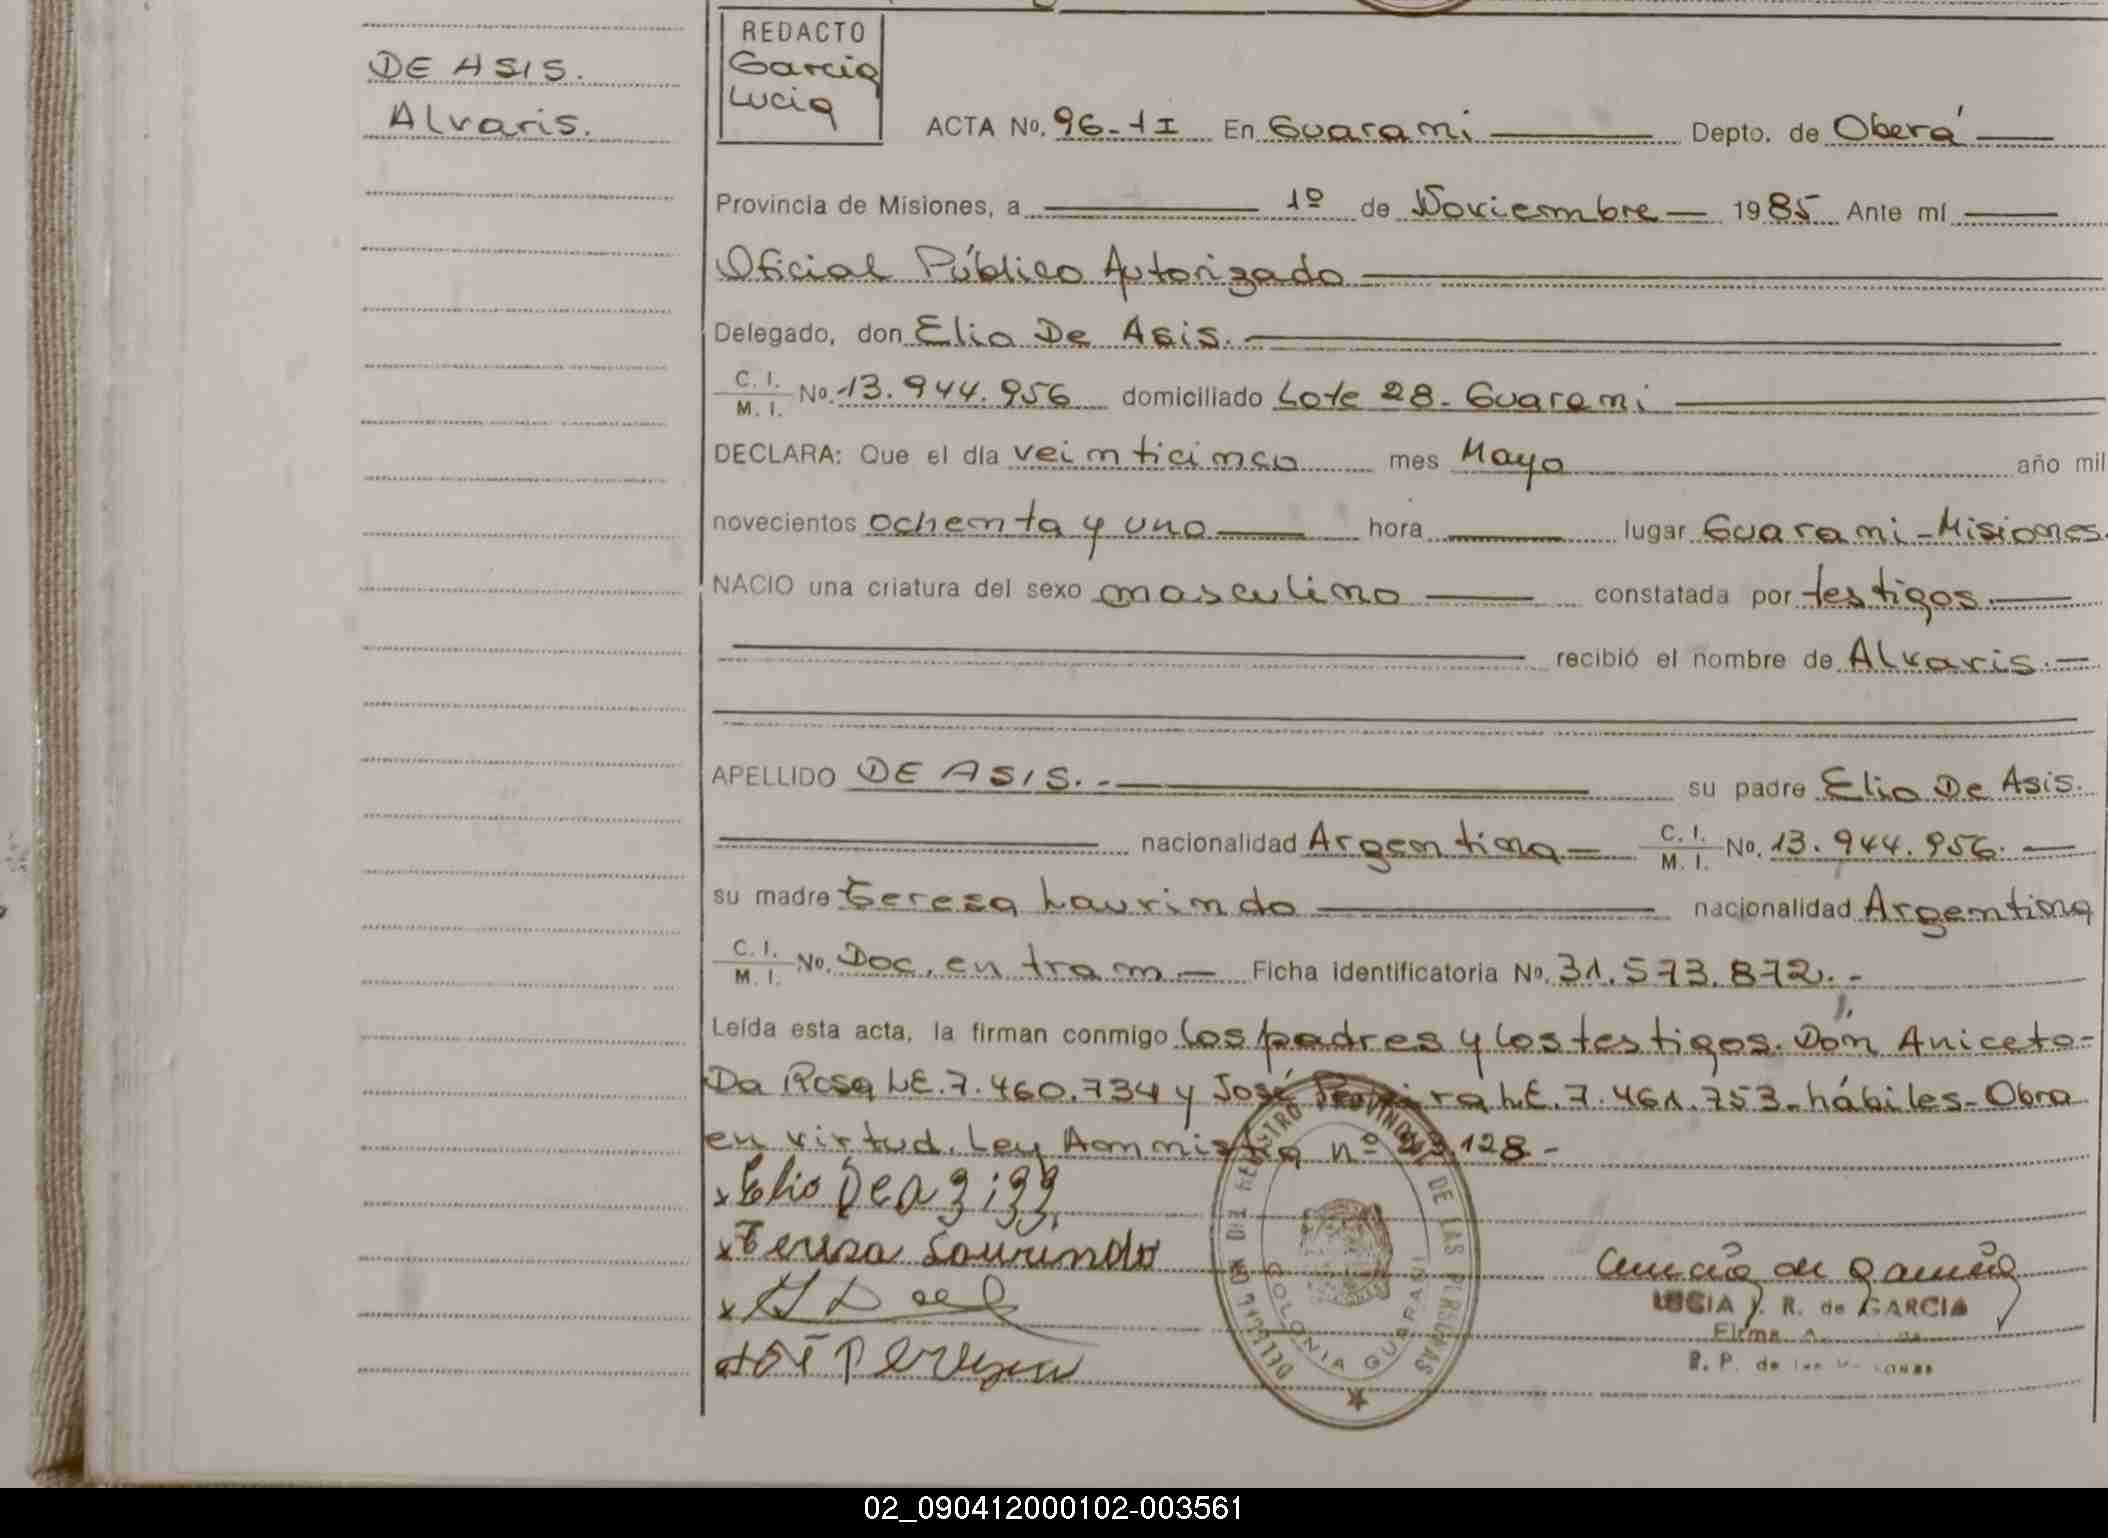 DE ASIS.
Alvaris.
REDACTO
Garcia
Lucia
ACTA No. 96-tI En Guarani Depto. de Oberá
Provincia de Misiones, a 1º de Noviembre 1985 Ante mí
Oficial Público Autorizado
Delegado, don Elio De Asis.
C. I. / M. I. No. 13.944.956 domiciliado Lote 28. Guarani
DECLARA: Que el día veinticinco mes Mayo año mil
novecientos ochenta y uno hora lugar Guarani-Misiones.
NACIO una criatura del sexo masculino constatada por testigos.
recibió el nombre de Alvaris.
APELLIDO DE ASIS. su padre Elio De Asis.
nacionalidad Argentina C. I. / M. I. No. 13.944.956.
su madre Teresa Laurindo nacionalidad Argentina
C. I. / M. I. No. Doc. en tram. Ficha identificatoria No. 31.573.872.-
Leída esta acta, la firman conmigo los padres y los testigos. Don Aniceto-
Da Rosa L.E. 7.460.734 y José L.E. 7.461.753-hábiles-Obra
en virtud. Ley Ammistia nº 23.128.-
x Elio
x Teresa Laurindo
x
DELEGACION DEL REGISTRO PROVINCIAL DE LAS PERSONAS
COLONIA GUARANI
LUCIA R. de GARCIA
Firma
R. P. de las
02_090412000102-003561